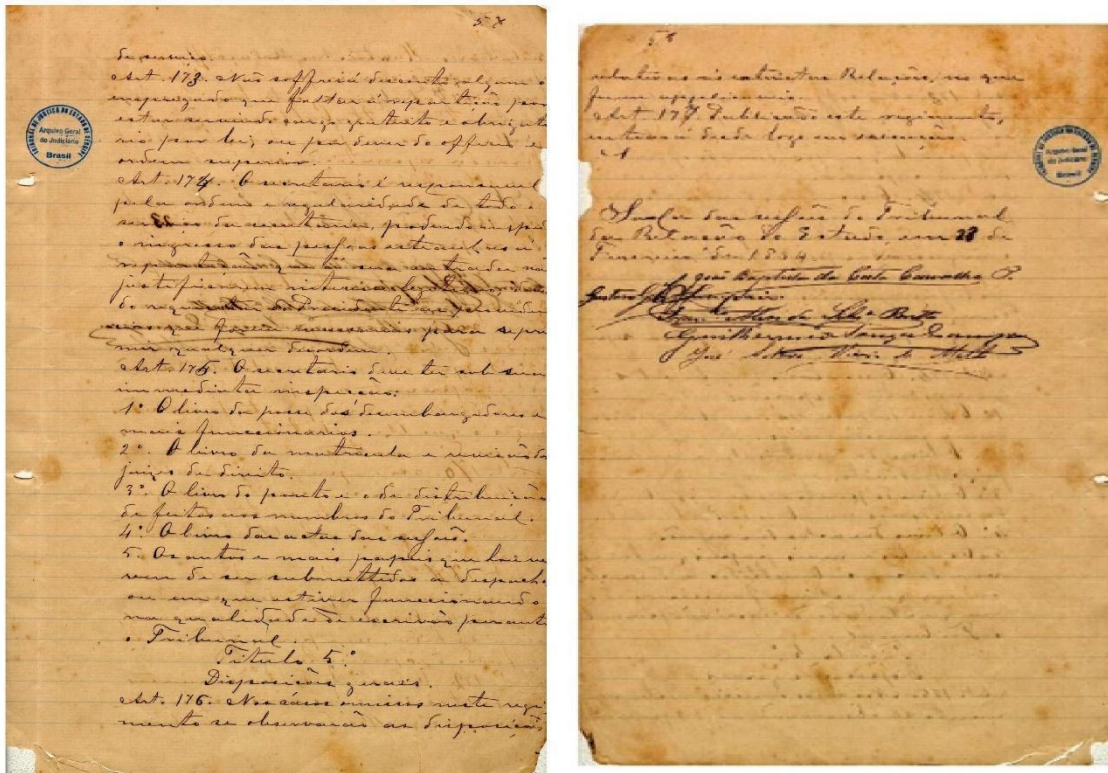 57
de serviço.
Art. 173. Não soffrerá desconto algum o
empregado que faltar á repartição por
estar servindo cargo gratuito e obrigato
rio por lei, ou por dever do officio e
ordem superior.
Art. 174. O secretario é responsavel
pela ordem e regularidade de todo o
serviço da secretaria, podendo
o ingresso das pessoas extranhas á
repartição, que sua entrada não
justificarem
do Presidente as
que forem necessarias para
qualquer desordem.
Art. 175. O secretario deve ter sob sua
immediata inspecção:
1º O livro da posse dos desembargadores e
mais funccionarios.
2º O livro da matricula e revisão dos
juizes de direito.
3º O livro do ponto e o da distribuição
de feitos aos membros do Tribunal.
4º O livro das actas das sessões.
5. Os autos e mais papeis que
de ser submettidos a despacho
ou em que estiver funccionando
na qualidade de escrivão perante
o Tribunal.
Titulo 5º
Disposições geraes.
Art. 176. Nos casos omissos neste regi
mento se observarão as disposições
TRIBUNAL DE JUSTIÇA DO ESTADO DE SERGIPE
Arquivo Geral
do Judiciário
Brasil
58
relativas ás extinctas Relações, no que
forem applicaveis.
Art. 177 Publicado este regimento,
entrará desde logo em execução.
Sala das sessões do Tribunal
da Relação do Estado, em 28 de
Fevereiro de 1894
João Baptista da Costa Carvalho P.
Gustavo
Brito
Guilherme de Souza Campos
José Vieira de Mello
TRIBUNAL DE JUSTIÇA DO ESTADO DE SERGIPE
Arquivo Geral
do Judiciário
Brasil